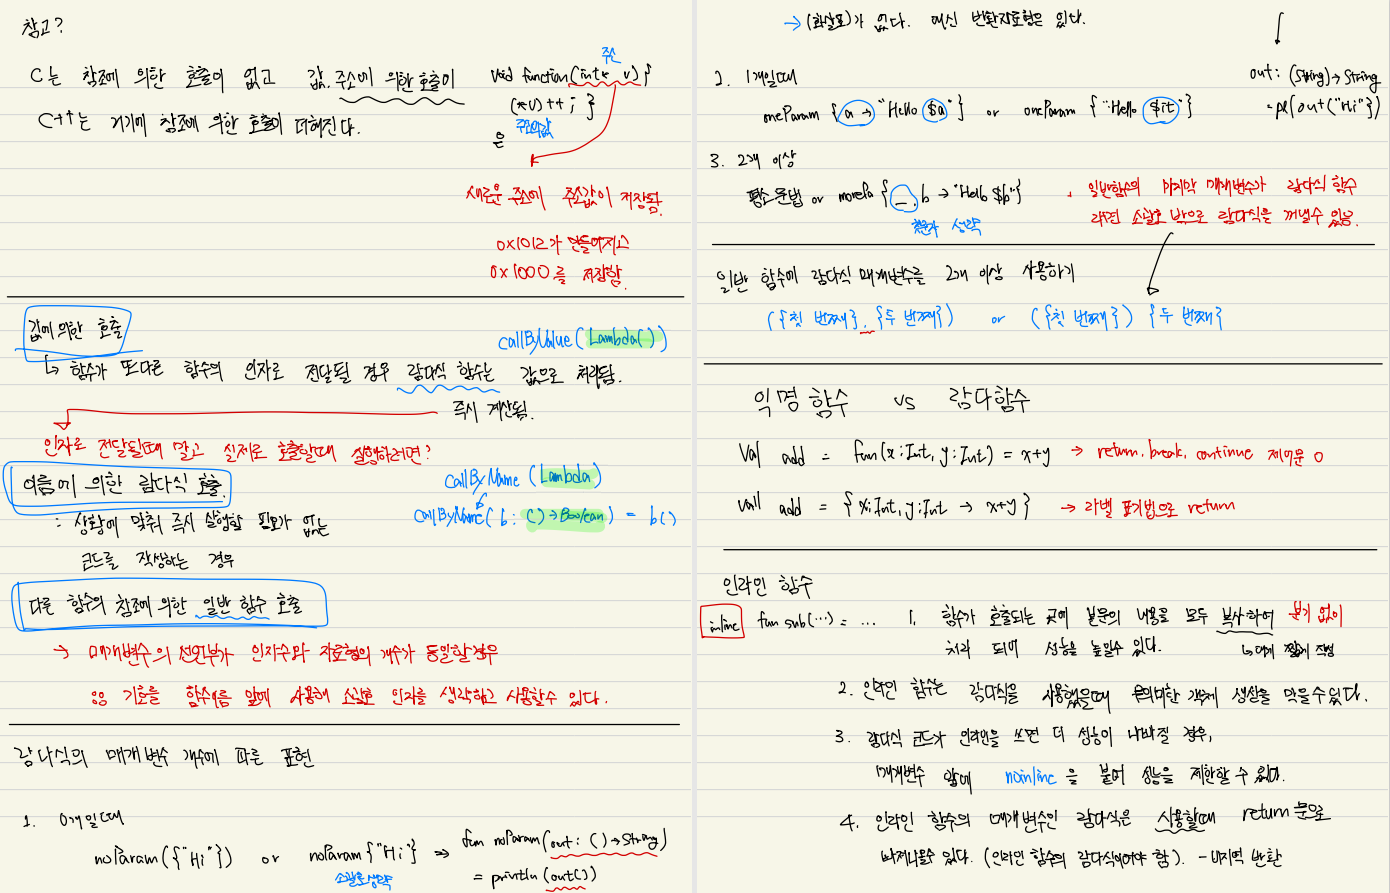 참고?
C는 참조에 의한 호출이 없고 값, 주소에 의한 호출이
C++는 거기에 참조에 의한 호출이 더해진다.
주소
void function(int* v){
(*v)++; }
주소의값
은
새로운 주소에 주소값이 저장됨.
0x1012가 만들어지고
0x1000를 저장함.
값에 의한 호출
callByValue(Lambda())
↳ 함수가 또다른 함수의 인자로 전달될 경우 람다식 함수는 값으로 처리됨.
즉시 계산됨.
인자로 전달될때 말고 실제로 호출할때 실행하려면?
이름에 의한 람다식 호출.
callByName(Lambda)
callByName(b: ()→Boolean) = b()
: 상황에 맞춰 즉시 실행할 필요가 없는
코드를 작성하는 경우
다른 함수의 참조에 의한 일반 함수 호출
→ 매개변수의 선언부가 인자수와 자료형의 개수가 동일할경우
:: 기호를 함수이름 앞에 사용해 소괄호 인자를 생략하고 사용할수 있다.
람다식의 매개변수 개수에 따른 표현
1. 0개일때
noParam({"Hi"}) or noParam{"Hi"} ⇒ fun noParam(out: ()→String)
소괄호생략
= println(out())
→ (화살표)가 없다. 대신 반환자료형은 있다.
2. 1개일때
out: (String)→String
oneParam {a → "Hello $a"} or oneParam {"Hello $it"}
=pl(out("Hi"))
3. 2개 이상
평소문법 or morePa {_, b → "Hello $b"}
생략
. 일반함수의 마지막 매개변수가 람다식 함수
라면 소괄호 밖으로 람다식을 꺼낼수 있음.
일반 함수에 람다식 매개변수를 2개 이상 사용하기
({첫 번째}, {두 번째}) or ({첫 번째}) {두 번째}
익명 함수 vs 람다함수
Val add = fun(x:Int, y:Int) = x+y → return, break, continue 제어문 O
vall add = {x:Int, y:Int → x+y} → 라벨 표기법으로 return
인라인 함수
inline fun sub(...) = ... 1. 함수가 호출되는 곳에 본문의 내용을 모두 복사하여 분기 없이
처리 되며 성능을 높일수 있다. ↳ 짧게 작성
2. 인라인 함수는 람다식을 사용했을때 무의미한 객체 생성을 막을수있다.
3. 람다식 코드가 인라인을 쓰면 더 성능이 나빠질 경우,
매개변수 앞에 noinline을 붙여 성능을 제한할 수 있다.
4. 인라인 함수의 매개변수인 람다식은 사용할때 return 문으로
빠져나올수 있다. (인라인 함수의 람다식이어야 함). - 비지역 반환